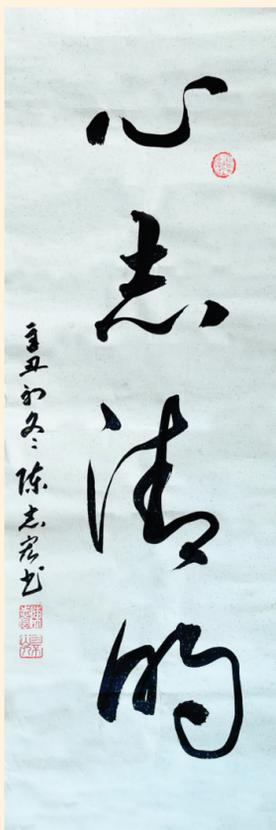 心志清明
辛丑初冬陈志宏书